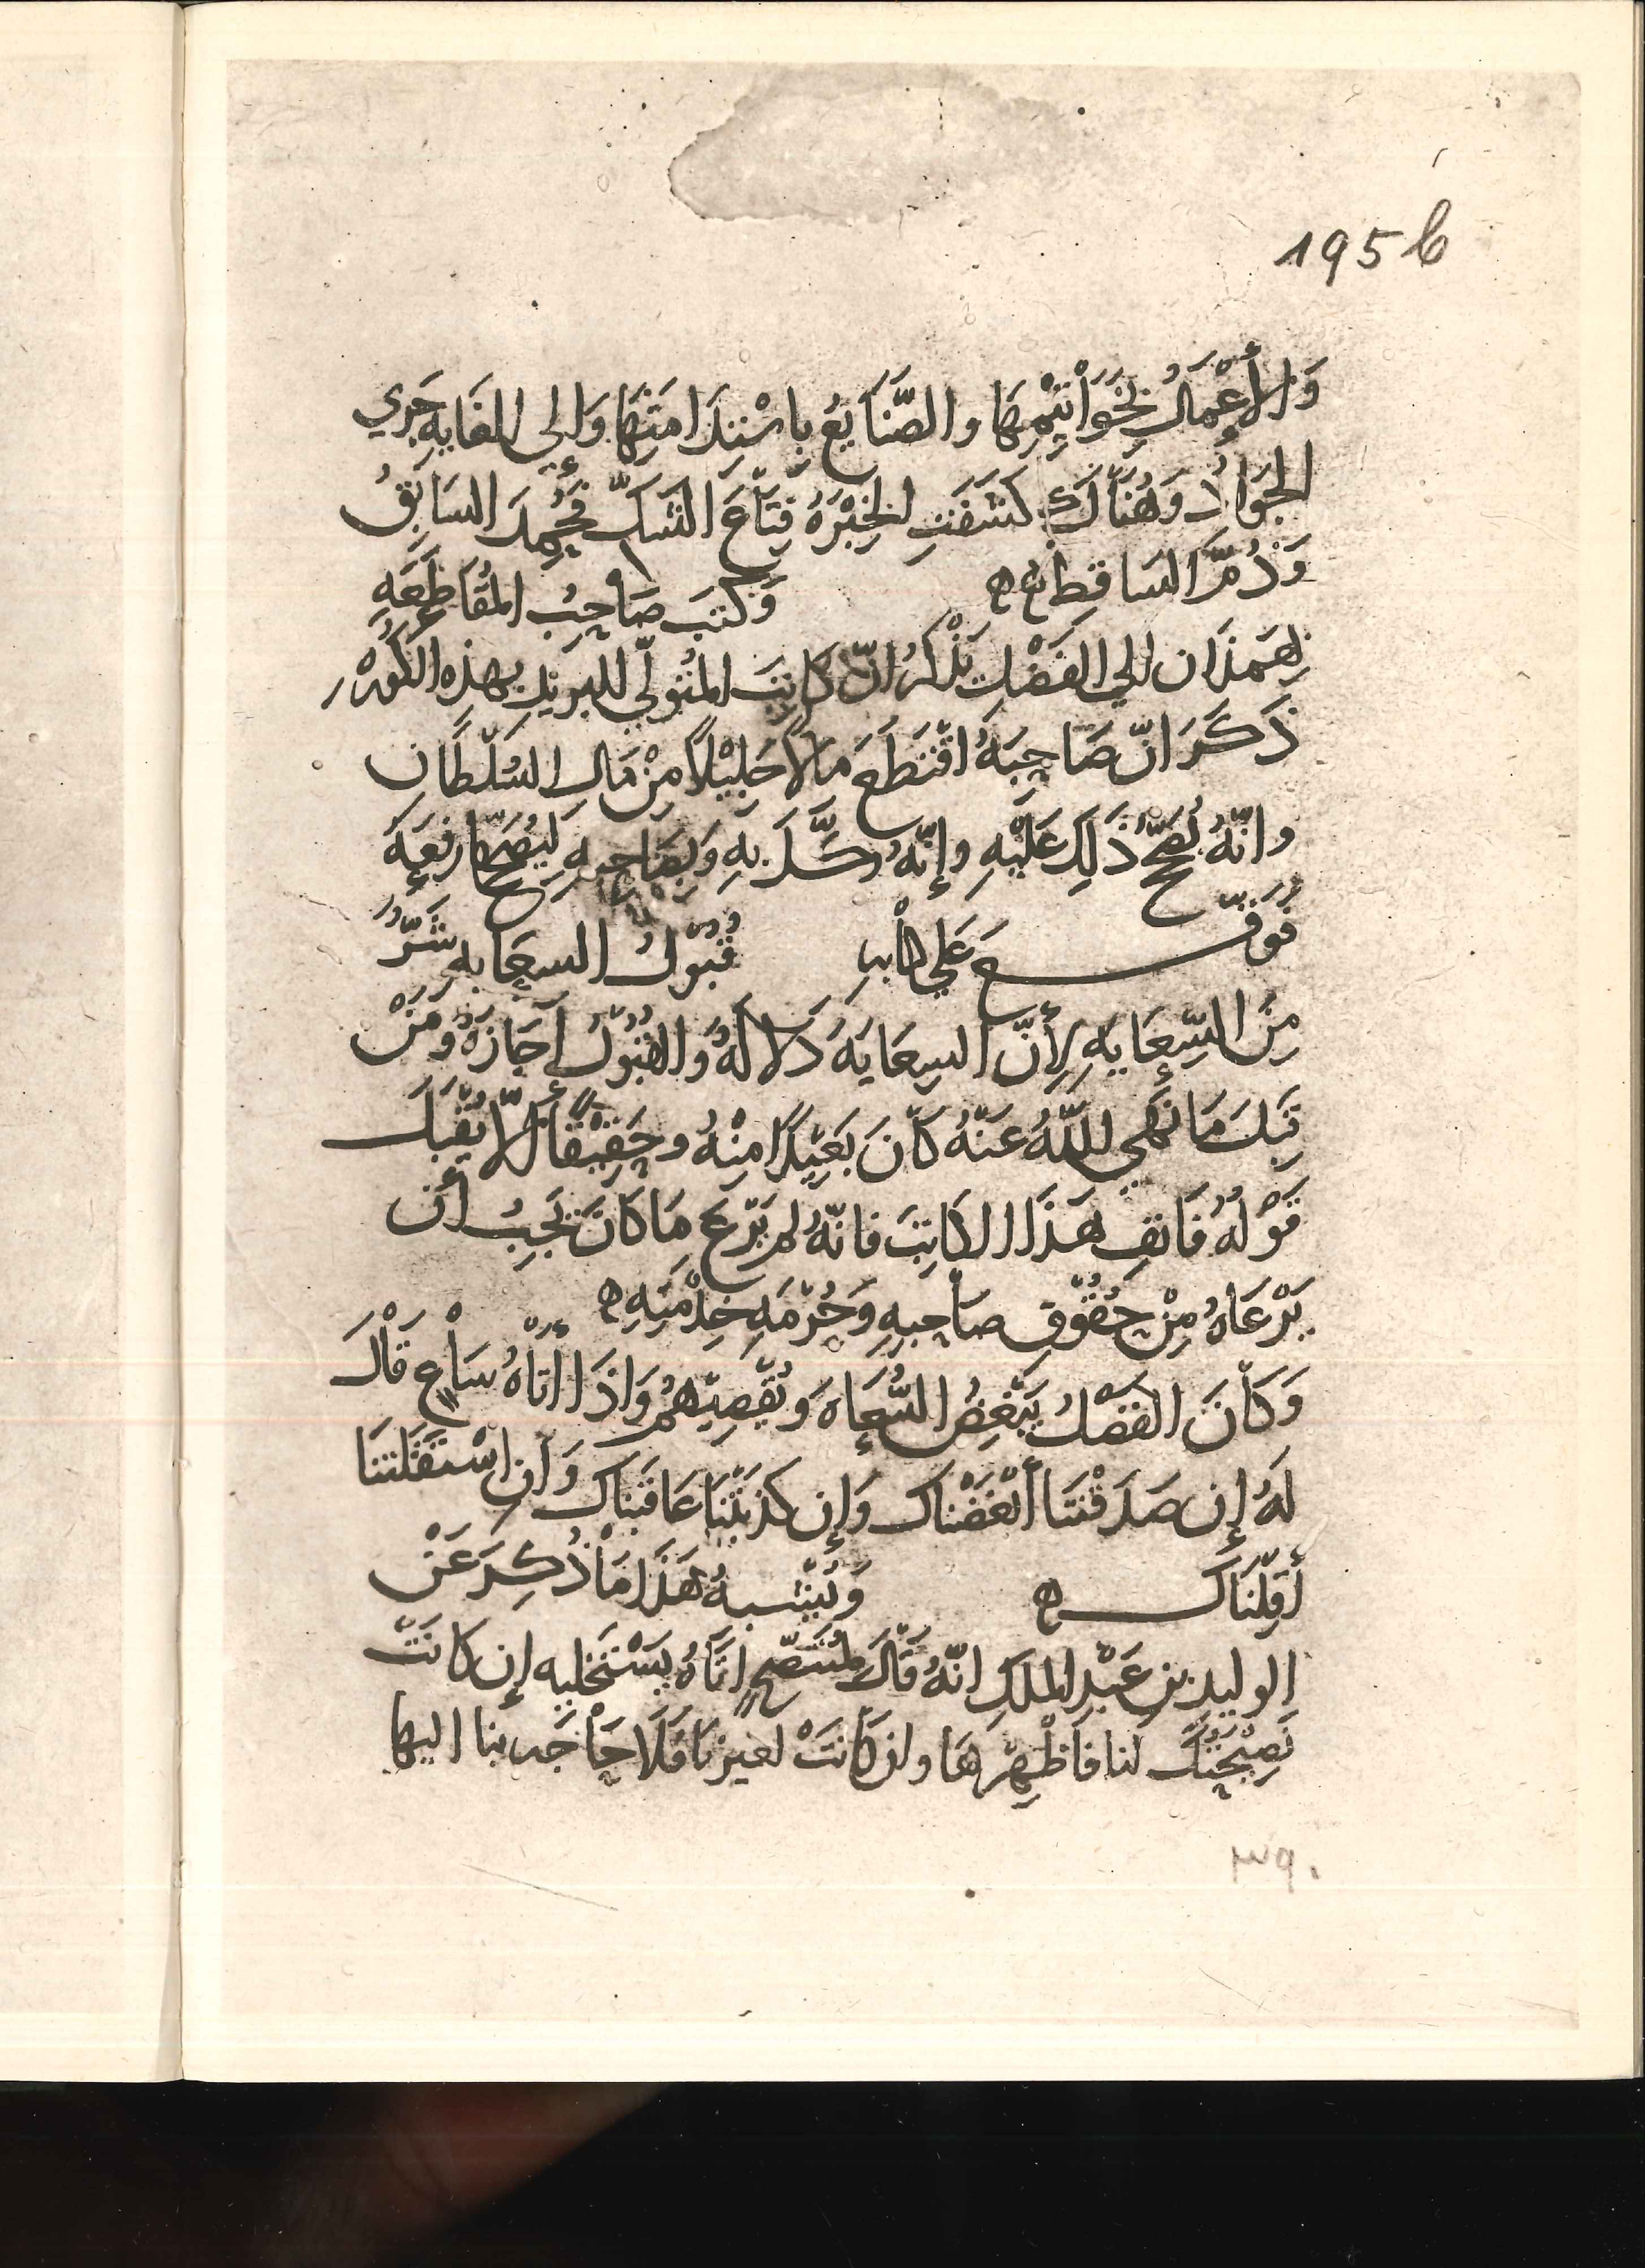 195 b
وَالأَعْمَالُ بِخَوَاتِيْمِهَا والصَّنَايعُ بِاسْتِدَامَتِهَا وَالى الغَايهِ جَري
الجَوَادُ وَهُنَاكَ كَشَفَتِ الخِبْرَهُ قِنَاعَ الشَكّ فَحُمِدَ السَابِقُ
وَذُمَّ السَاقِطُ وَكتبَ صَاحِبُ المُقَاطَعَهِ
بِهَمَذَان الي الفَضْلِ يَذْكُر انّ كَاتِبَ المُتولّي للبريدِ بهذِه الكُورَه
ذَكَرَ انّ صَاحِبَهُ اقْتَطَعَ مَالاً جَلِيْلاً مِنْ مَالِ السُلْطَان
وانّهُ يُصَحّحُ ذَلِكَ عَلَيْهِ وإنّهُ وكَّلَ بِهِ وَبِصَاحبِهِ لِيُصَحّحَا رفِعَهُ
فَوَقّع عَلي كتابه قُبُوْلُ السعَايه شَرٌّ
مِنَ السِّعَايَهِ لِأَنّ السِعَايَهَ دَلَالَهٌ وَالقُبُوْلُ اجَازَهٌ وَمَنْ
قَبِلَ مَا نَهَى اللّهُ عَنْهُ كَانَ بَعِيْدًا مِنْهُ وحَقِيْقًا ألّا يُقْبَلَ
قَوْلُهُ فَانفِ هَذَا الكَاتِبَ فانّهُ لم يَرْعَ مَا كَانَ يَجِبُ أن
يَرْعَاهُ مِنْ حُقُوْقِ صَاحِبِهِ وَحُرْمَهِ خِدْمَتِهِ
وَكَانَ الفَضْلُ يَبْغِضُ السُّعَاهَ وَيُقْصِيْهُم وَاذَا اتاهُ سَاعٍ قَالَ
لَهُ إن صَدَقْتَنَا أَبْغَضْنَاك وَإن كذَبْتَنَا عَاقَبْنَاك وَان اسْتَقَلْتَنَا
أقَلْنَاك وَيُشْبهُ هَذَا مَا ذُكِرَ عَنْ
الوليدِ بن عَبْدِ الملكِ انّهُ قَالَ لمُتَنَصّحٍ اتَاهُ يَسْتَخْلِيه إن كانَتْ
نَصِيْحَتُكَ لنا فَأَظْهِرْهَا وان كَانَتْ لغيْرنَا فَلَا حَاجَه بنا اليها
٣٩٠